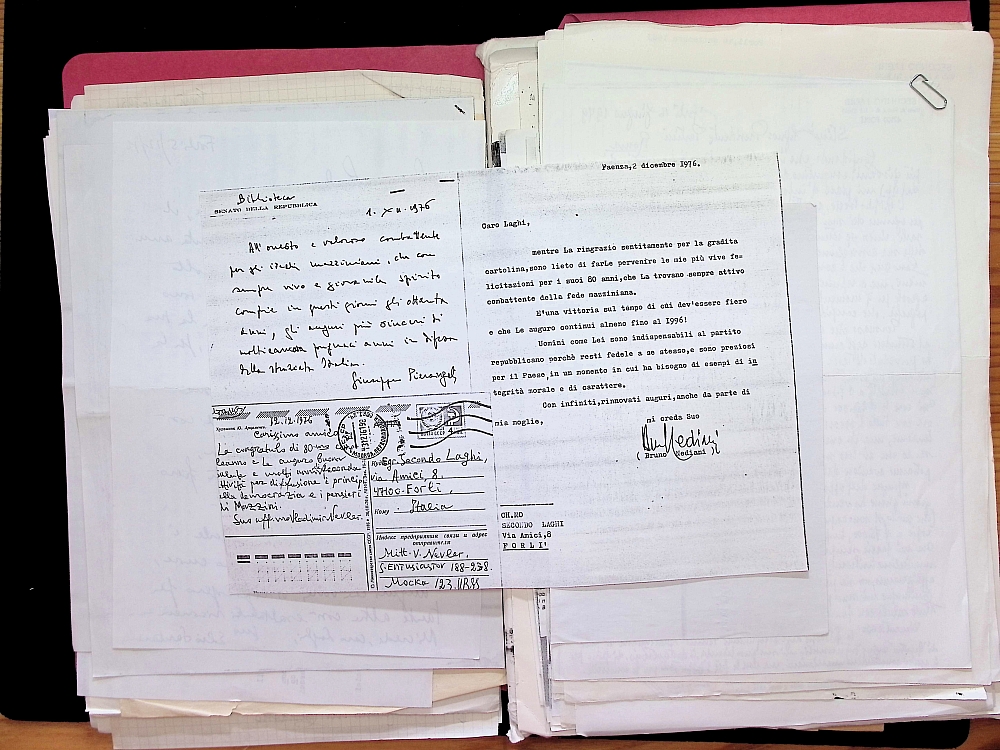 Biblioteca
SENATO DELLA REPUBBLICA
1. XII. 1976
All'onesto e valoroso combattente
per gli ideali mazziniani, che con
sempre vivo e giovanile spirito
compie in questi giorni gli ottanta
anni, gli auguri più sinceri di
molti ancora anni in difesa
della
Giuseppe
12.12.1976
Carissimo amico
La congratulo di 80-mo
leanno e Le auguro buona
salute e molti anni
attività per diffusione e principi
della democrazia e i pensieri
di Mazzini.
Suo aff.mo Vladimir Nevler.
Egr. Secondo Laghi,
via Amici, 8.
47100-Forlì,
Кому Italia
Индекс предприятия связи и адрес
отправителя
Mitt. V. Nevler.
188-238.
Москва 123,
Faenza,2 dicembre 1976.
Caro Laghi,
mentre La ringrazio sentitamente per la gradita
cartolina,sono lieto di farLe pervenire le mie più vive fe=
licitazioni per i suoi 80 anni,che La trovano sempre attivo
combattente della fede mazziniana.
E'una vittoria sul tempo di cui dev'essere fiero
e che Le auguro continui almeno fino al 1996!
Uomini come Lei sono indispensabili al partito
repubblicano perchè resti fedele a se stesso,e sono preziosi
per il Paese,in un momento in cui ha bisogno di esempi di in
tegrità morale e di carattere.
Con infiniti,rinnovati auguri,anche da parte di
mia moglie,
mi creda Suo
( Bruno Nediani )
CH.MO
SECONDO LAGHI
Via Amici,8
FORLI'